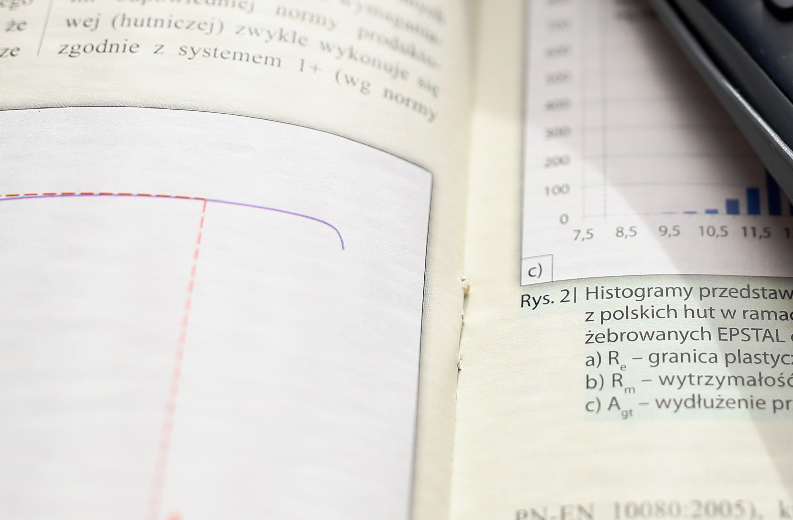 że
ze
wej (hutniczej) zwykle wykonuje się
zgodnie z systemem 1+ (wg normy
200
100
0
7,5 8,5 9,5 10,5 11,5
c)
Rys. 2| Histogramy przedstaw
z polskich hut w ramac
żebrowanych EPSTAL
a) Re – granica plastycz
b) Rm – wytrzymałość
c) Agt – wydłużenie pr
PN-EN 10080:2005), k